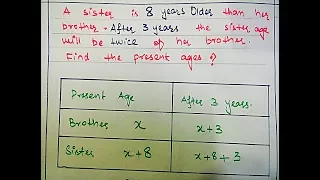 A sister is 8 years Older than her
brother. After 3 years the sister age
will be twice of her brother.
Find the present ages?
Present Age After 3 years.
Brother x x+3
Sister x+8 x+8+3